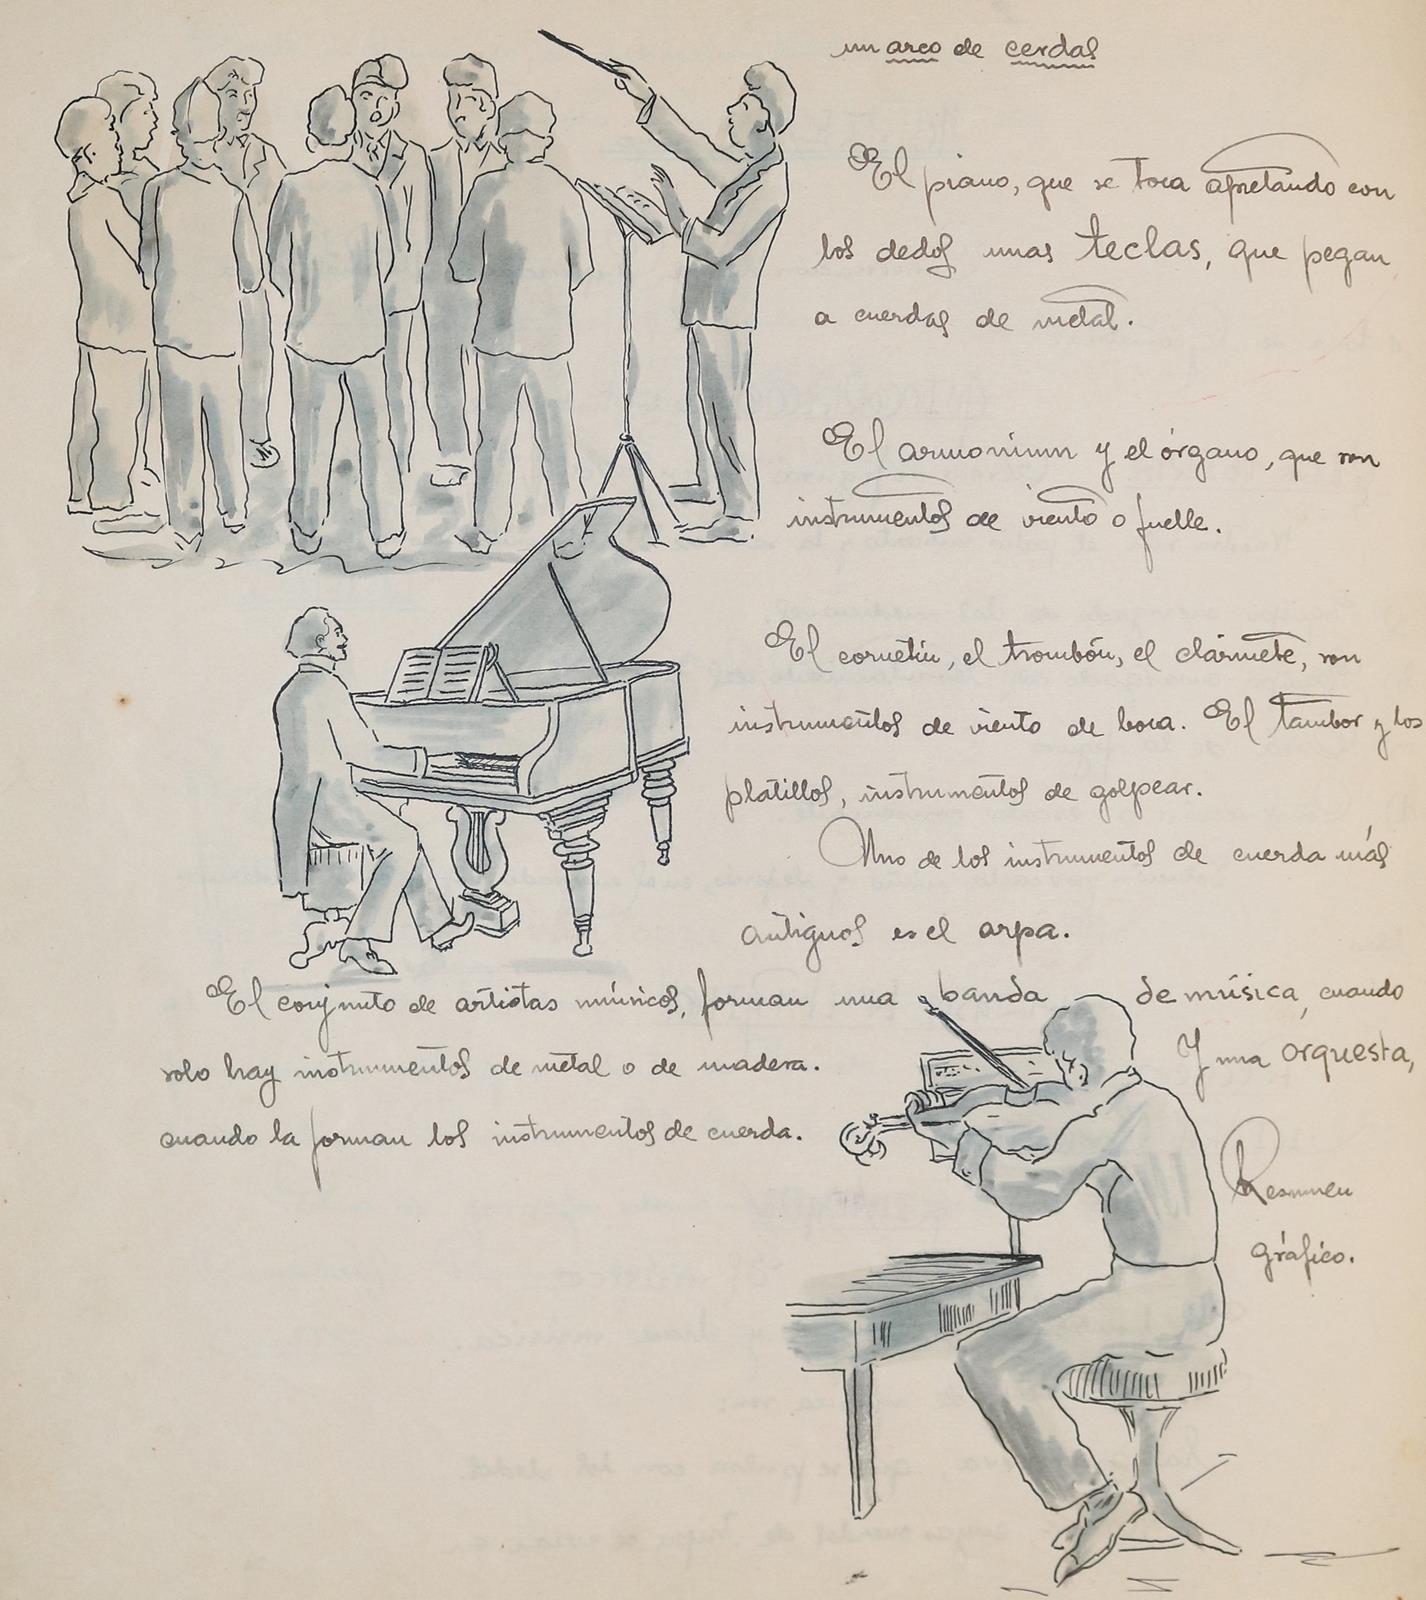 un arco de cerdas
El piano, que se toca apretando con
los dedos unas teclas, que pegan
a cuerdas de metal.
El armonium y el órgano, que son
instrumentos de viento o fuelle.
El cornetín, el trombón, el clarinete, son
instrumentos de viento de boca. El tambor y los
platillos, instrumentos de golpear.
Uno de los instrumentos de cuerda más
antiguos es el arpa.
El conjunto de artistas músicos, forman una banda de música, cuando
solo hay instrumentos de metal o de madera. Y una orquesta,
cuando la forman los instrumentos de cuerda.
Resumen
gráfico.